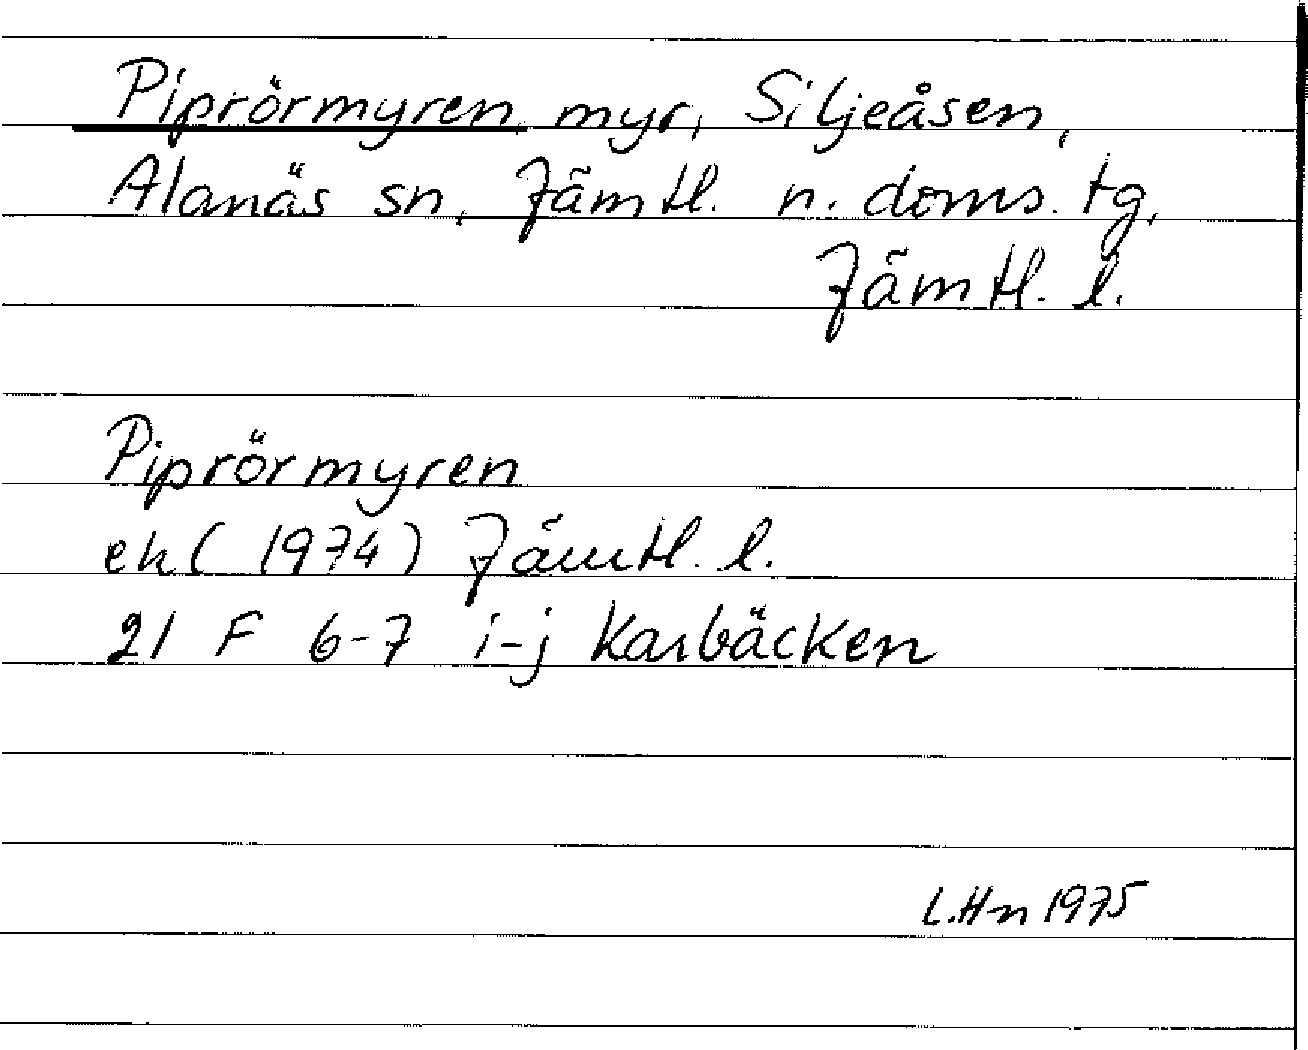 Piprörmyren myr, Siljeåsen,
Alanäs sn, Jämtl. n. doms. tg,
Jämtl. l.
Piprörmyren
ek (1974) Jämtl. l.
21 F 6-7 i-j Karbäcken
L.Hn 1975